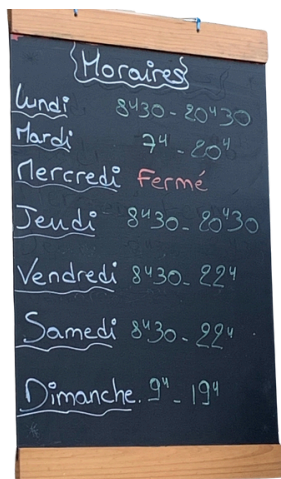 Horaires
Lundi 8H30 - 20H30
Mardi 7H - 20H
Mercredi Fermé
Jeudi 8H30 - 20H30
Vendredi 8H30 - 22H
Samedi 8H30 - 22H
Dimanche. 9H - 19H